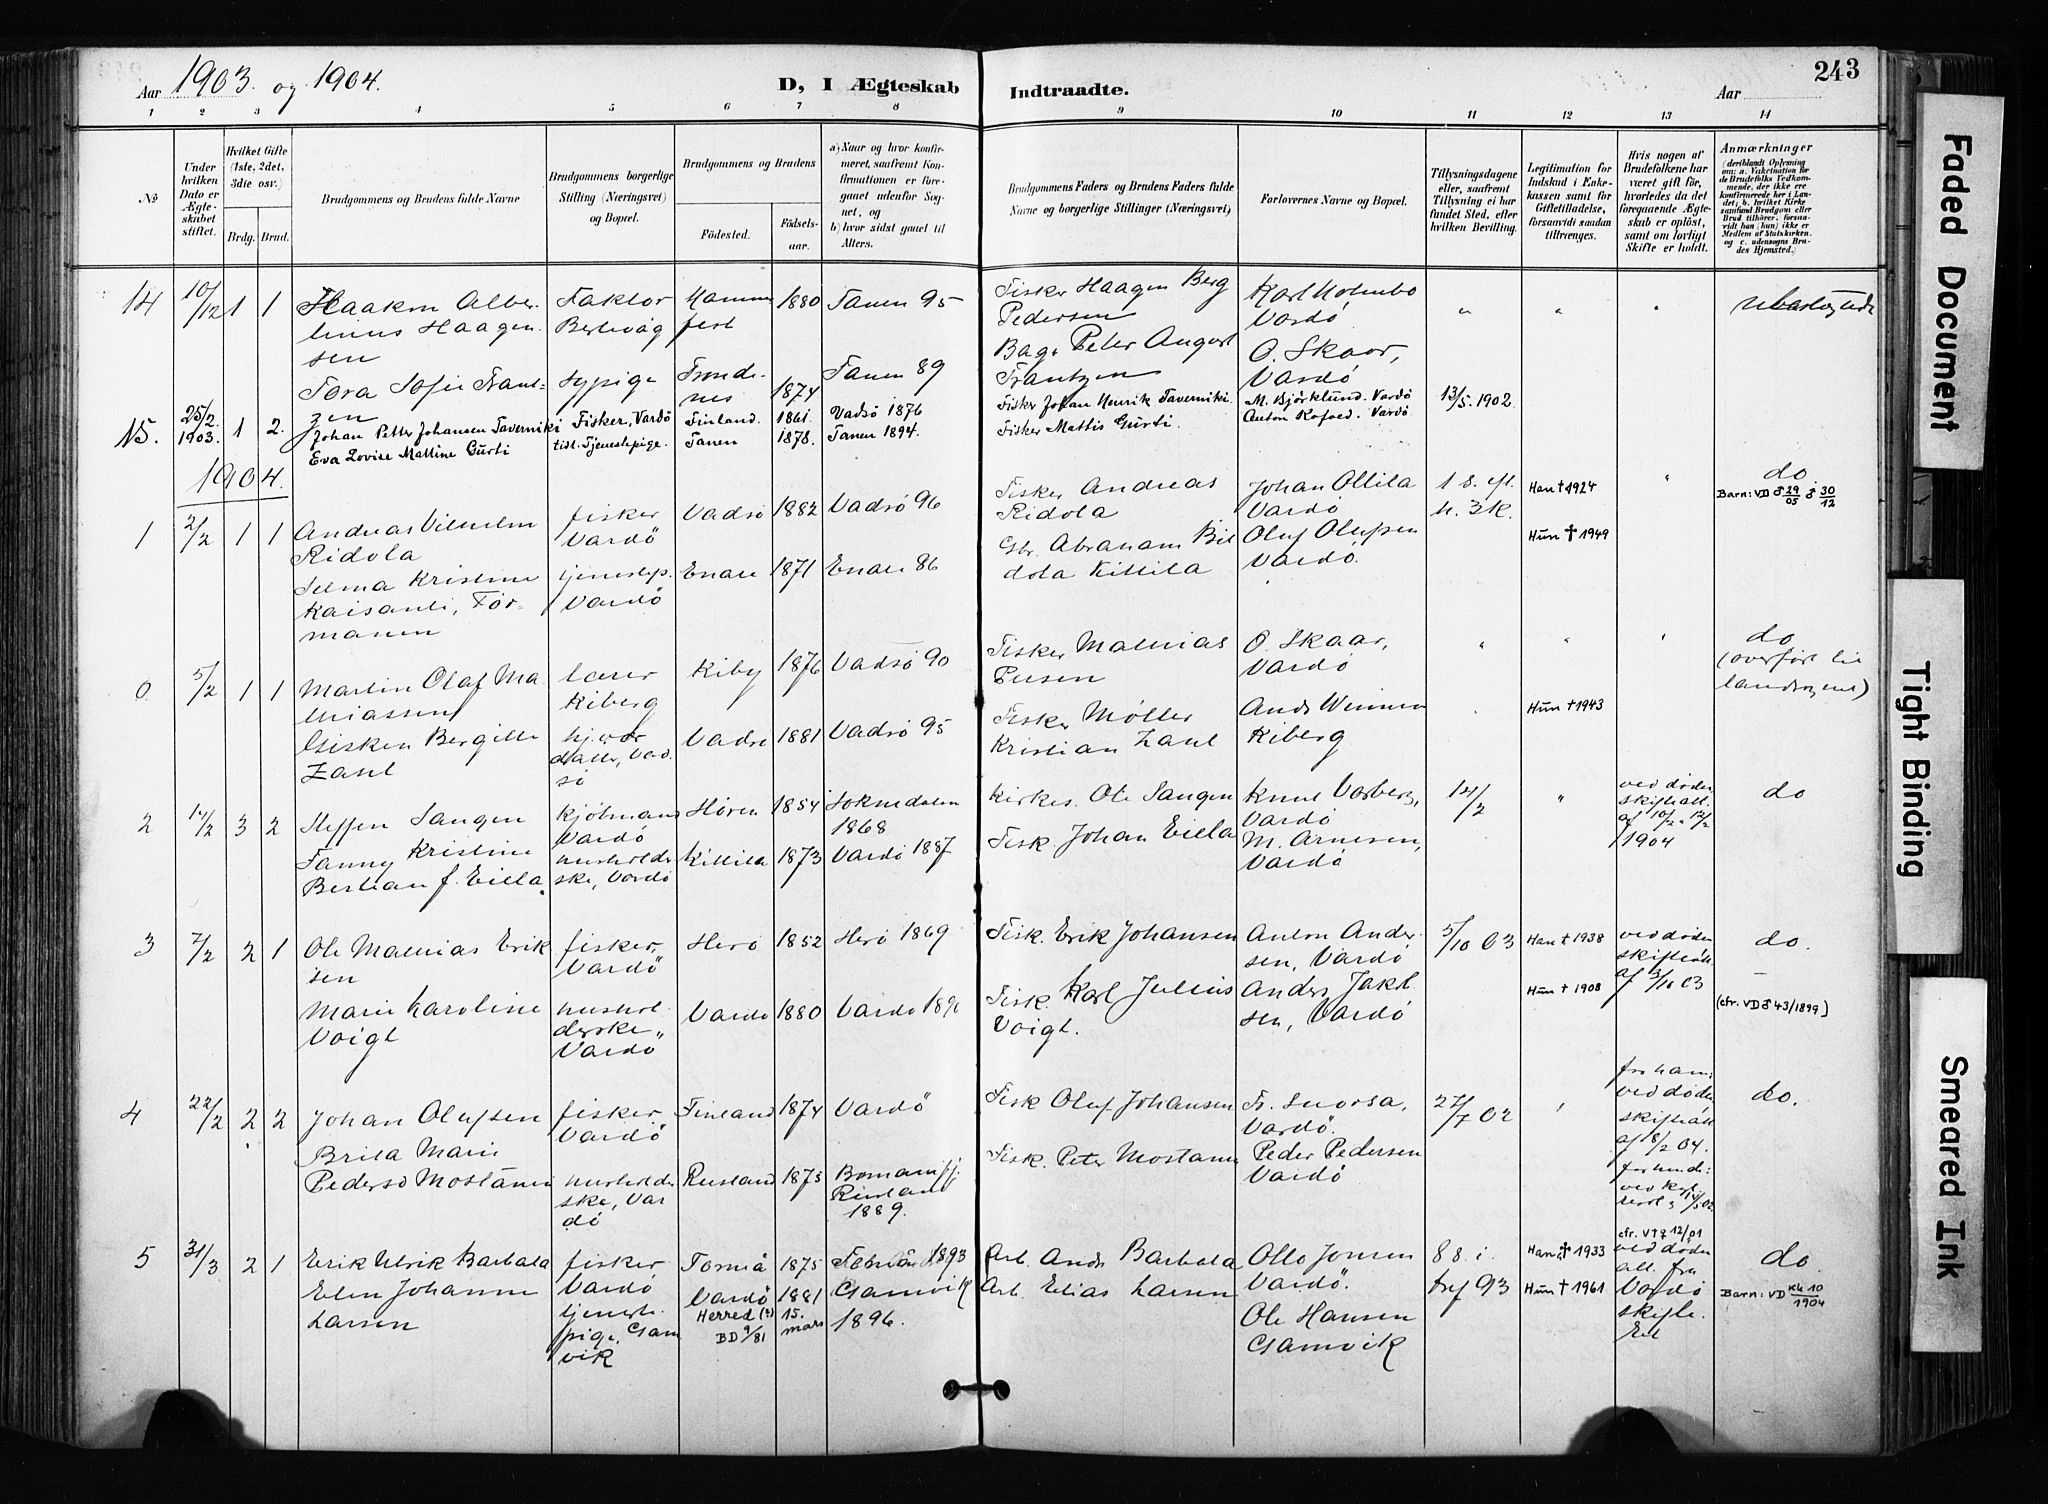 Aar 1903. og 1904.
D, I Ægteskab Indtraadte.
Aar
243
1 2 3 4 5 6 7 8 9 10 11 12 13 14
No
Under hvilken Dato er Ægteskabet stiftet.
Hvilket Gifte (1ste, 2det, 3die osv.)
Brdg. Brud.
Brudgommens og Brudens fulde Navne
Brudgommens borgerlige Stilling (Næringsvei) og Bopæl.
Brudgommens og Brudens
Födested. Födselsaar.
a) Naar og hvor konfirmeret, saafremt Konfirmationen er foregaaet udenfor Sognet, og
b) hvor sidst gaaet til Alters.
Brudgommens Faders og Brudens Faders fulde Navne og borgerlige Stillinger (Næringsvei)
Forlovernes Navne og Bopæl.
Tillysningsdagene eller, saafremt Tillysning ei har fundet Sted, efter hvilken Bevilling.
Legitimation for Indskud i Enkekassen samt for Giftetilladelse, forsaavidt saadan tiltrænges.
Hvis nogen af Brudefolkene har været gift før, hvorledes da det foregaaende Ægteskab er opløst, samt om lovligt Skifte er holdt.
Anmærkninger
(deriblandt Oplysning om: a. Vaksination for de Brudefolks Vedkommende, der ikke ere konfirmerede her i Landet; b. hvilket Kirkesamfund Brudgom eller Brud tilhörer, forsaavidt han (hun) ikke er Medlem af Statskirken, og c. udensogns Brudes Hjemsted.)
14 10/12 1 1 Haakon Alber- Faktor Hammer 1880 Tanen 95 Fisker Haagen Berg Karl Holmbo " " "
linus Haagen- Berlevåg fest Pedersen Vardö
sen Bag. Peter August O. Skaar,
Tora Sofie Frant- Sypige Trondenes 1874 Tanen 89 Frantzen Vardö
zen
15. 25/2 1903. 1 2. Johan Petter Johansen Taverniki Fisker, Vardö Finland. 1861. Vadsö 1876 Fisker Johan Henrik Taverniki. M. Björklund. Vardö 13/5. 1902.
Eva Lovise Mattine Gurti tidl. Tjenestepige. Tanen 1878. Tanen 1894. Fisker Mattis Gurti. Anton Kofoed. Vardö
1904.
1 2/2 1 1 Andreas Vilhelm fisker Vadsö 1882 Vadsö 96 Fisker Andreas Johan Ollila 1 s. eft. Han † 1924 " do
Ridola Vardö Ridola Vardö h. 3k. Barn: VD ♂ 29/05 ♂ 30/12
Selma Kristine tjenestep. Enare 1871 Enare 86 Gbr. Abraham Oluf Olufsen Hun † 1949
Kaisanti, För- Vardö Kittila Vardö.
manen
0 5/2 1 1 Martin Olaf Ma- lærer Kiby 1876 Vadsö 90 Fisker Mathias O. Skaar, " " " do
thiassen Kiberg Vardö (overfört til
landsognet)
Gisken Bergitte Vadsö 1881 Vadsö 95 Fisker Møller Hun † 1943
Zahl Kristian Zahl Kiberg
2 14/2 3 2 Steffen Sangen kjöbmand Hören 1854 Soknedalen Kirkes. Ole Sangen Knut Varberg, 14/2 " ved döden do
Vardö 1868 Vardö skifteatt.
Fanny Kristine husholder- Kittila 1873 Vardö 1887 Fisk. Johan Eilla M. Arnesen, af 10/2 - 12/2
Bertian f. Eilla. ske, Vardö Vardö 1904
3 7/2 2 1 Ole Mathias Erik- fisker, Herö 1852 Herö 1869 Fisk. Erik Johansen Anton Ander- 5/10 03 Han † 1938 ved döden do.
sen Vardö sen, Vardö skifteatt.
Marie Karoline hushol- Vardö 1880 Vardö 1896 Fisk. Karl Julius Anders Jakob- Hun † 1908 af 3/10 03 (cfr. VD ♂ 43/1899)
Voigt derske, Voigt. sen, Vardö
Vardö
4 22/2 2 2 Johan Olufsen fisker Finland 1874 Vardö Fisk Oluf Johansen Fr. Snorsa, 27/7 02 " for ham: do.
Vardö Vardö. ved döden
Brita Marie skifteatt.
Pederso Mostanen husholder- Rusland 1875 Bomanfj. Fisk. Peter Mostanen Peder Pedersen af 8/2 04.
ske, Var- Rusland Vardö for hende:
dö 1889. ved kgl.
5 31/3 2 1 Erik Ulrik Barbala fisker Torneå 1875 Torneå 1893 Arb. Anders Barbala Otto Jensen 8 s. i. Han † 1933 cfr. V†♀ 12/01 do
Vardö Vardö. ved döden
Elen Johanne tjeneste- Vardö 1881 Gamvik Arb. Elias Larsen Ole Hansen 93 Hun † 1961 att. fra Barn: VD Kh 10/1904
Larsen pige, Gam- Herred (?) 15. 1896. Gamvik Vardö
vik BD 9/81 mars skifte.
Faded Document
Tight Binding
Smeared Ink